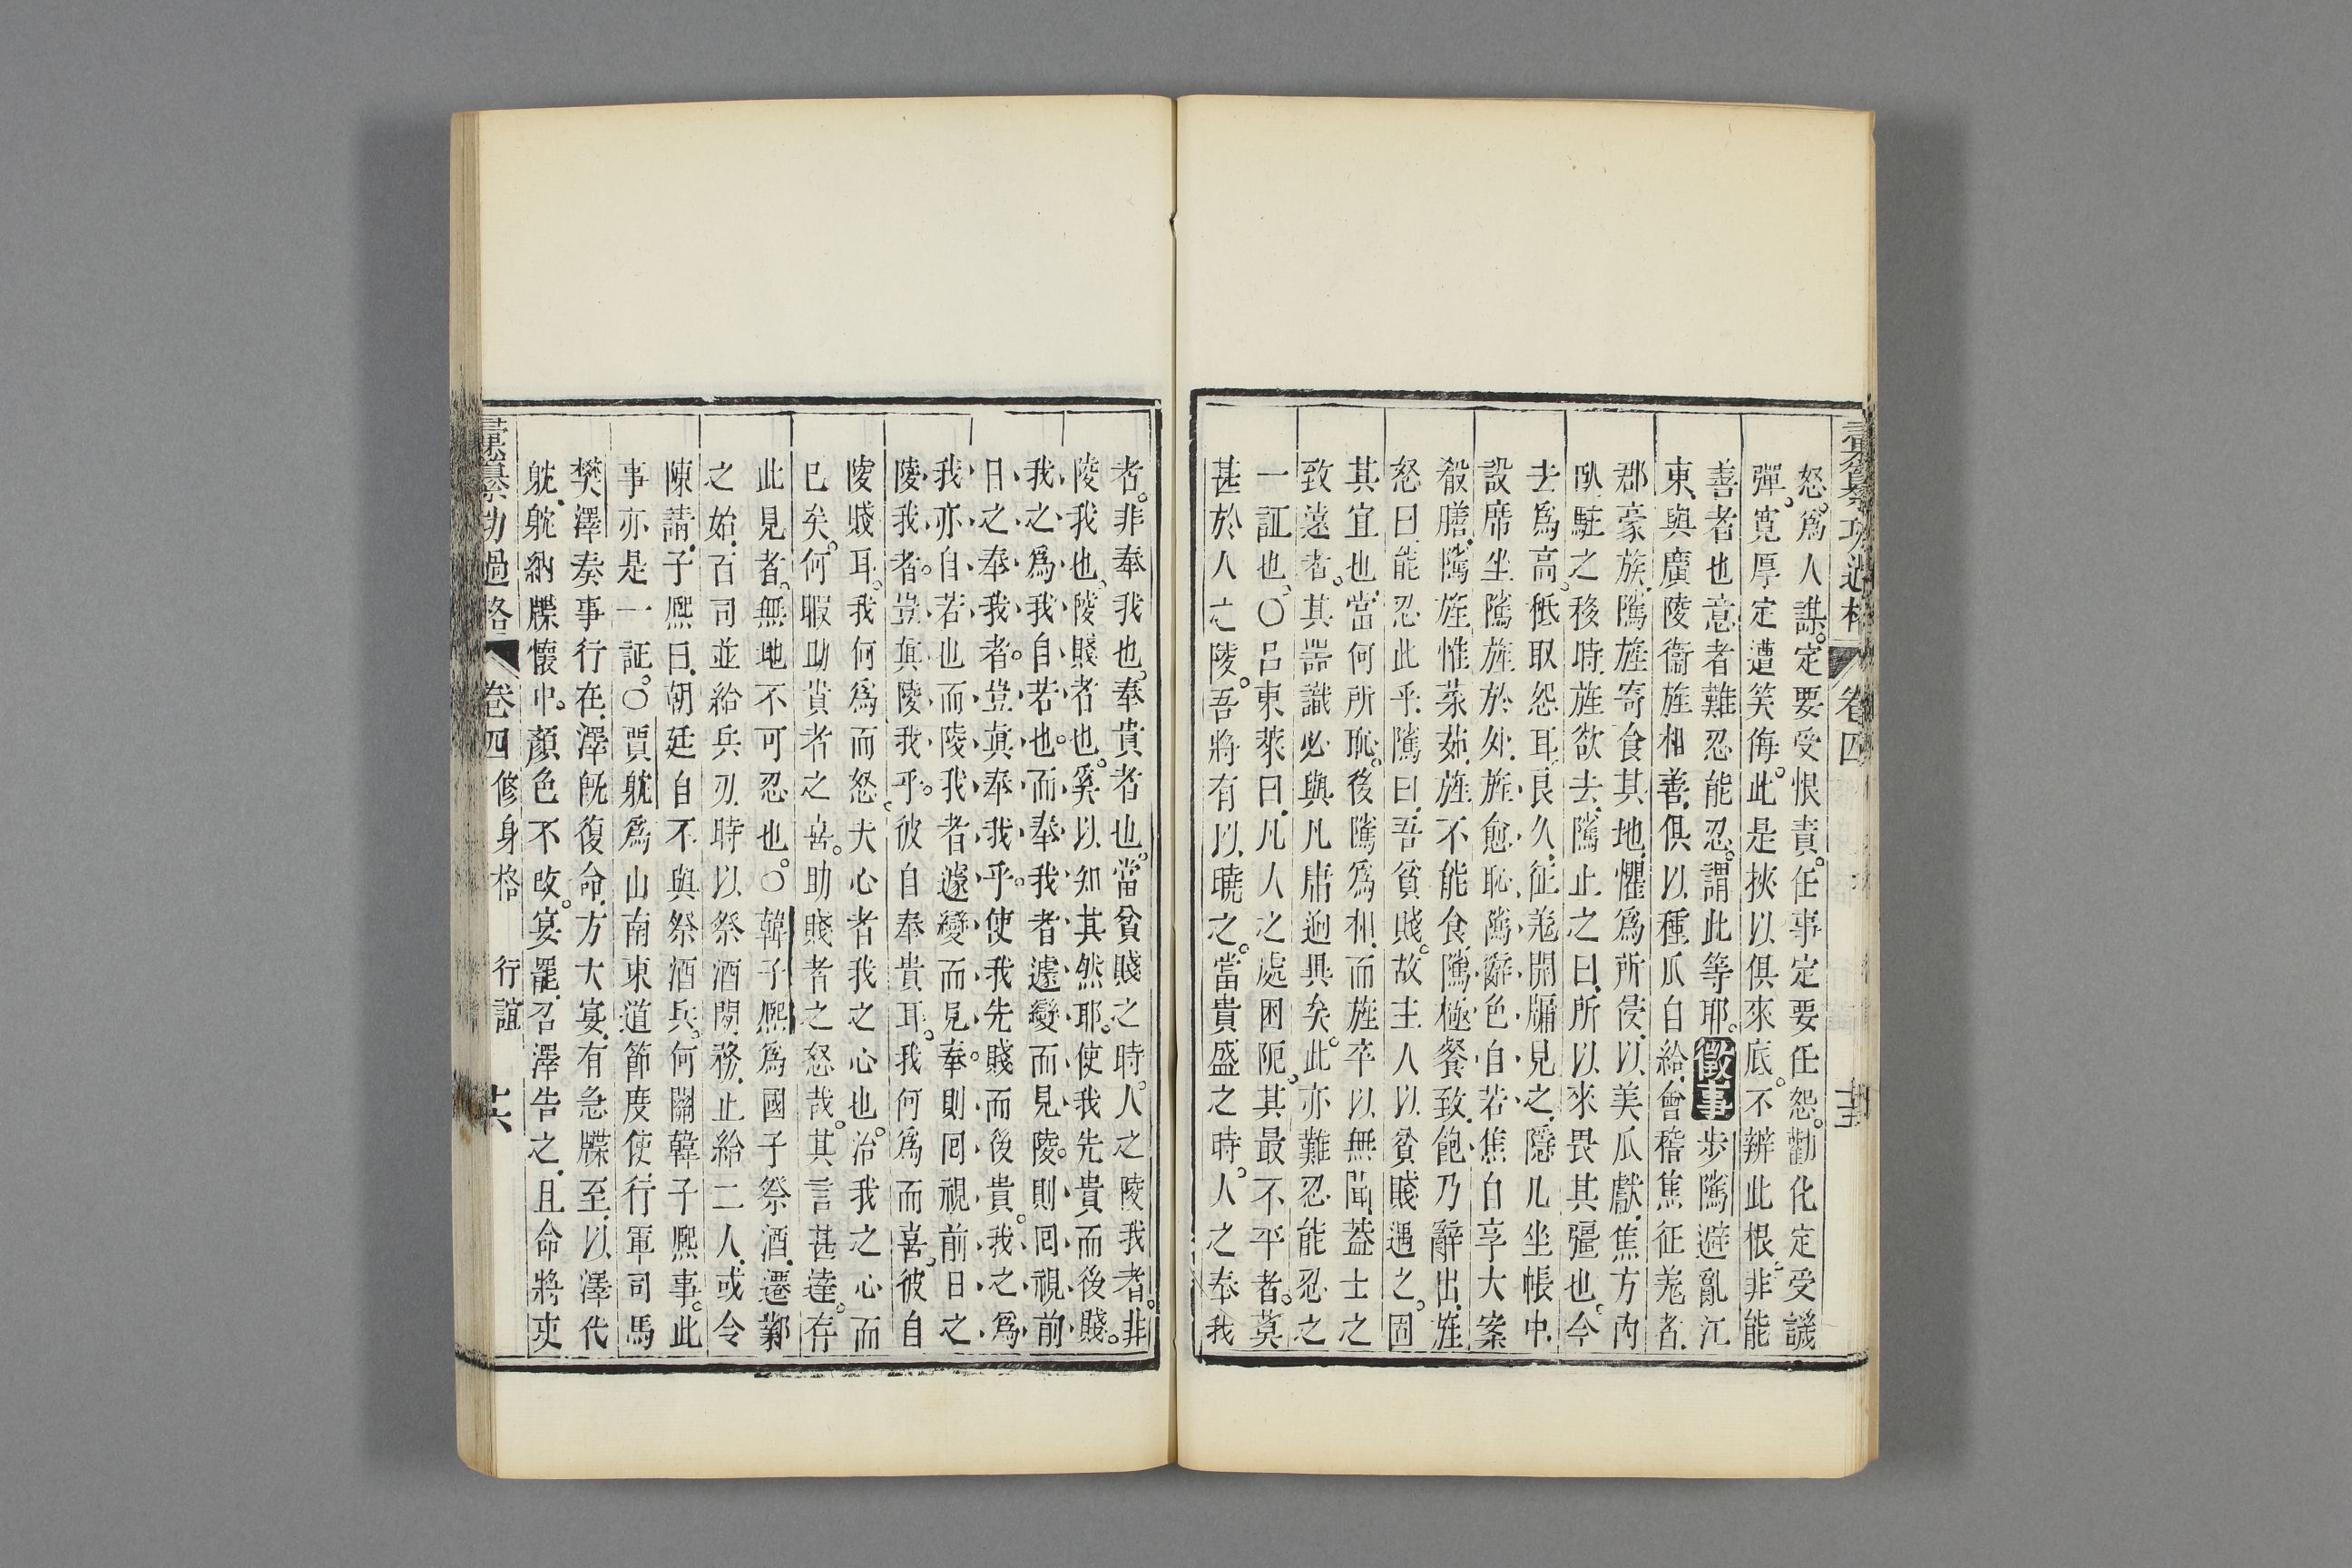 彙纂功過格 卷四
怒。爲人謀。定要受恨責。任事定要任怨。勸化定受譏
彈。寬厚定遭笑侮。此是挾以俱來底。不辨此根。非能
善者也。意者難忍能忍。謂此等耶。徵事步隲避亂江
東、與廣陵衞旌相善、俱以種瓜自給、會稽焦征羗者、
郡豪族、隲旌寄食其地、懼爲所侵、以美瓜獻、焦方內
臥、駐之移時、旌欲去、隲止之曰、所以來畏其彊也、今
去爲高、秪取怨耳、良久、征羗開牖見之、隱几坐帳中、
設席坐隲旌於外、旌愈恥、隲辭色自若、焦自享大案
殽膳、隲旌惟菜茹、旌不能食、隲極餐致飽乃辭出、旌
怒曰、能忍此乎、隲曰、吾貧賤。故主人以貧賤遇之。固
其宜也、當何所恥。後隲爲相、而旌卒以無聞、蓋士之
致遠者。其器識必與凡庸逈異矣。此亦難忍能忍之
一証也、〇呂東萊曰、凡人之處困阨、其最不平者。莫
甚於人之陵。吾將有以曉之。當貴盛之時。人之奉我
者。非奉我也。奉貴者也。當貧賤之時。人之陵我者。非
陵我也、陵賤者也。奚以知其然耶。使我先貴而後賤。
我之爲我自若也。而奉我者遽變而見陵。則囘視前
日之奉我者。豈眞奉我乎。使我先賤而後貴。我之爲
我亦自若也而陵我者遽變而見奉。則囘視前日之
陵我者。豈眞陵我乎。彼自奉貴耳。我何爲而喜。彼自
陵賤耳。我何爲而怒。夫心者我之心也。治我之心而
已矣。何暇助貴者之喜。助賤者之怒哉。其言甚達。存
此見者。無地不可忍也。〇韓子熙爲國子祭酒、遷鄴
之始、百司並給兵刃、時以祭酒閒務、止給二人、或令
陳請、子熙曰、朝廷自不與祭酒兵。何關韓子熙事。此
事亦是一証。〇賈躭爲山南東道節度使、行軍司馬
樊澤奏事行在、澤旣復命、方大宴、有急牒至、以澤代
躭、躭納牒懷中。顏色不改。宴罷、召澤告之、且命將吏
彙纂功過格 卷四 修身格 行誼 十六